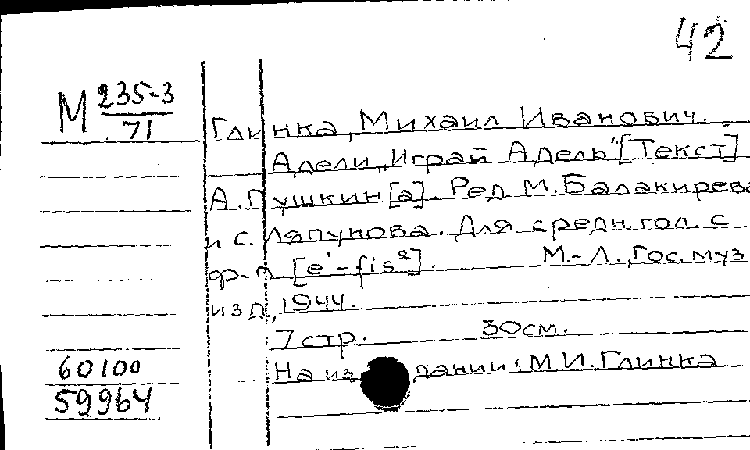 42
М 235-3
71
Глинка, Михаил Иванович.
Адели „Играй Адель" [Текст]
А. Пушкин[а]. Ред М. Балакирева
и С. Ляпунова. Для средн. гол. с
ф-п [e'-fis²]. М.-Л., Гос. муз
изд, 1944.
7 стр. 30 см.
60100
На из дании: М. И. Глинка
59964